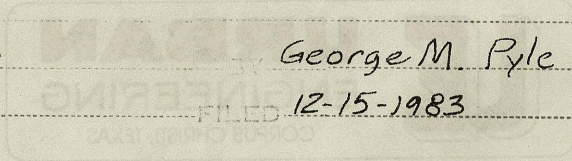 George M. Pyle
FILED 12-15-1983